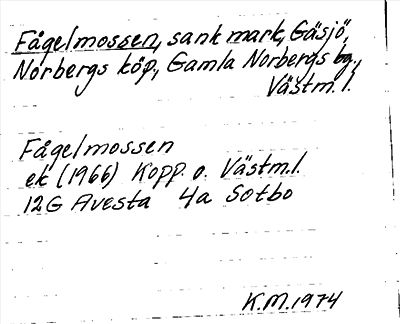 Fågelmossen, sank mark, Gäsjö,
Norbergs köp., Gamla Norbergs bg.,
Västm.l.
Fågelmossen
ek (1966) Kopp. o. Västm.l.
12G Avesta 4a Sotbo
K.M. 1974